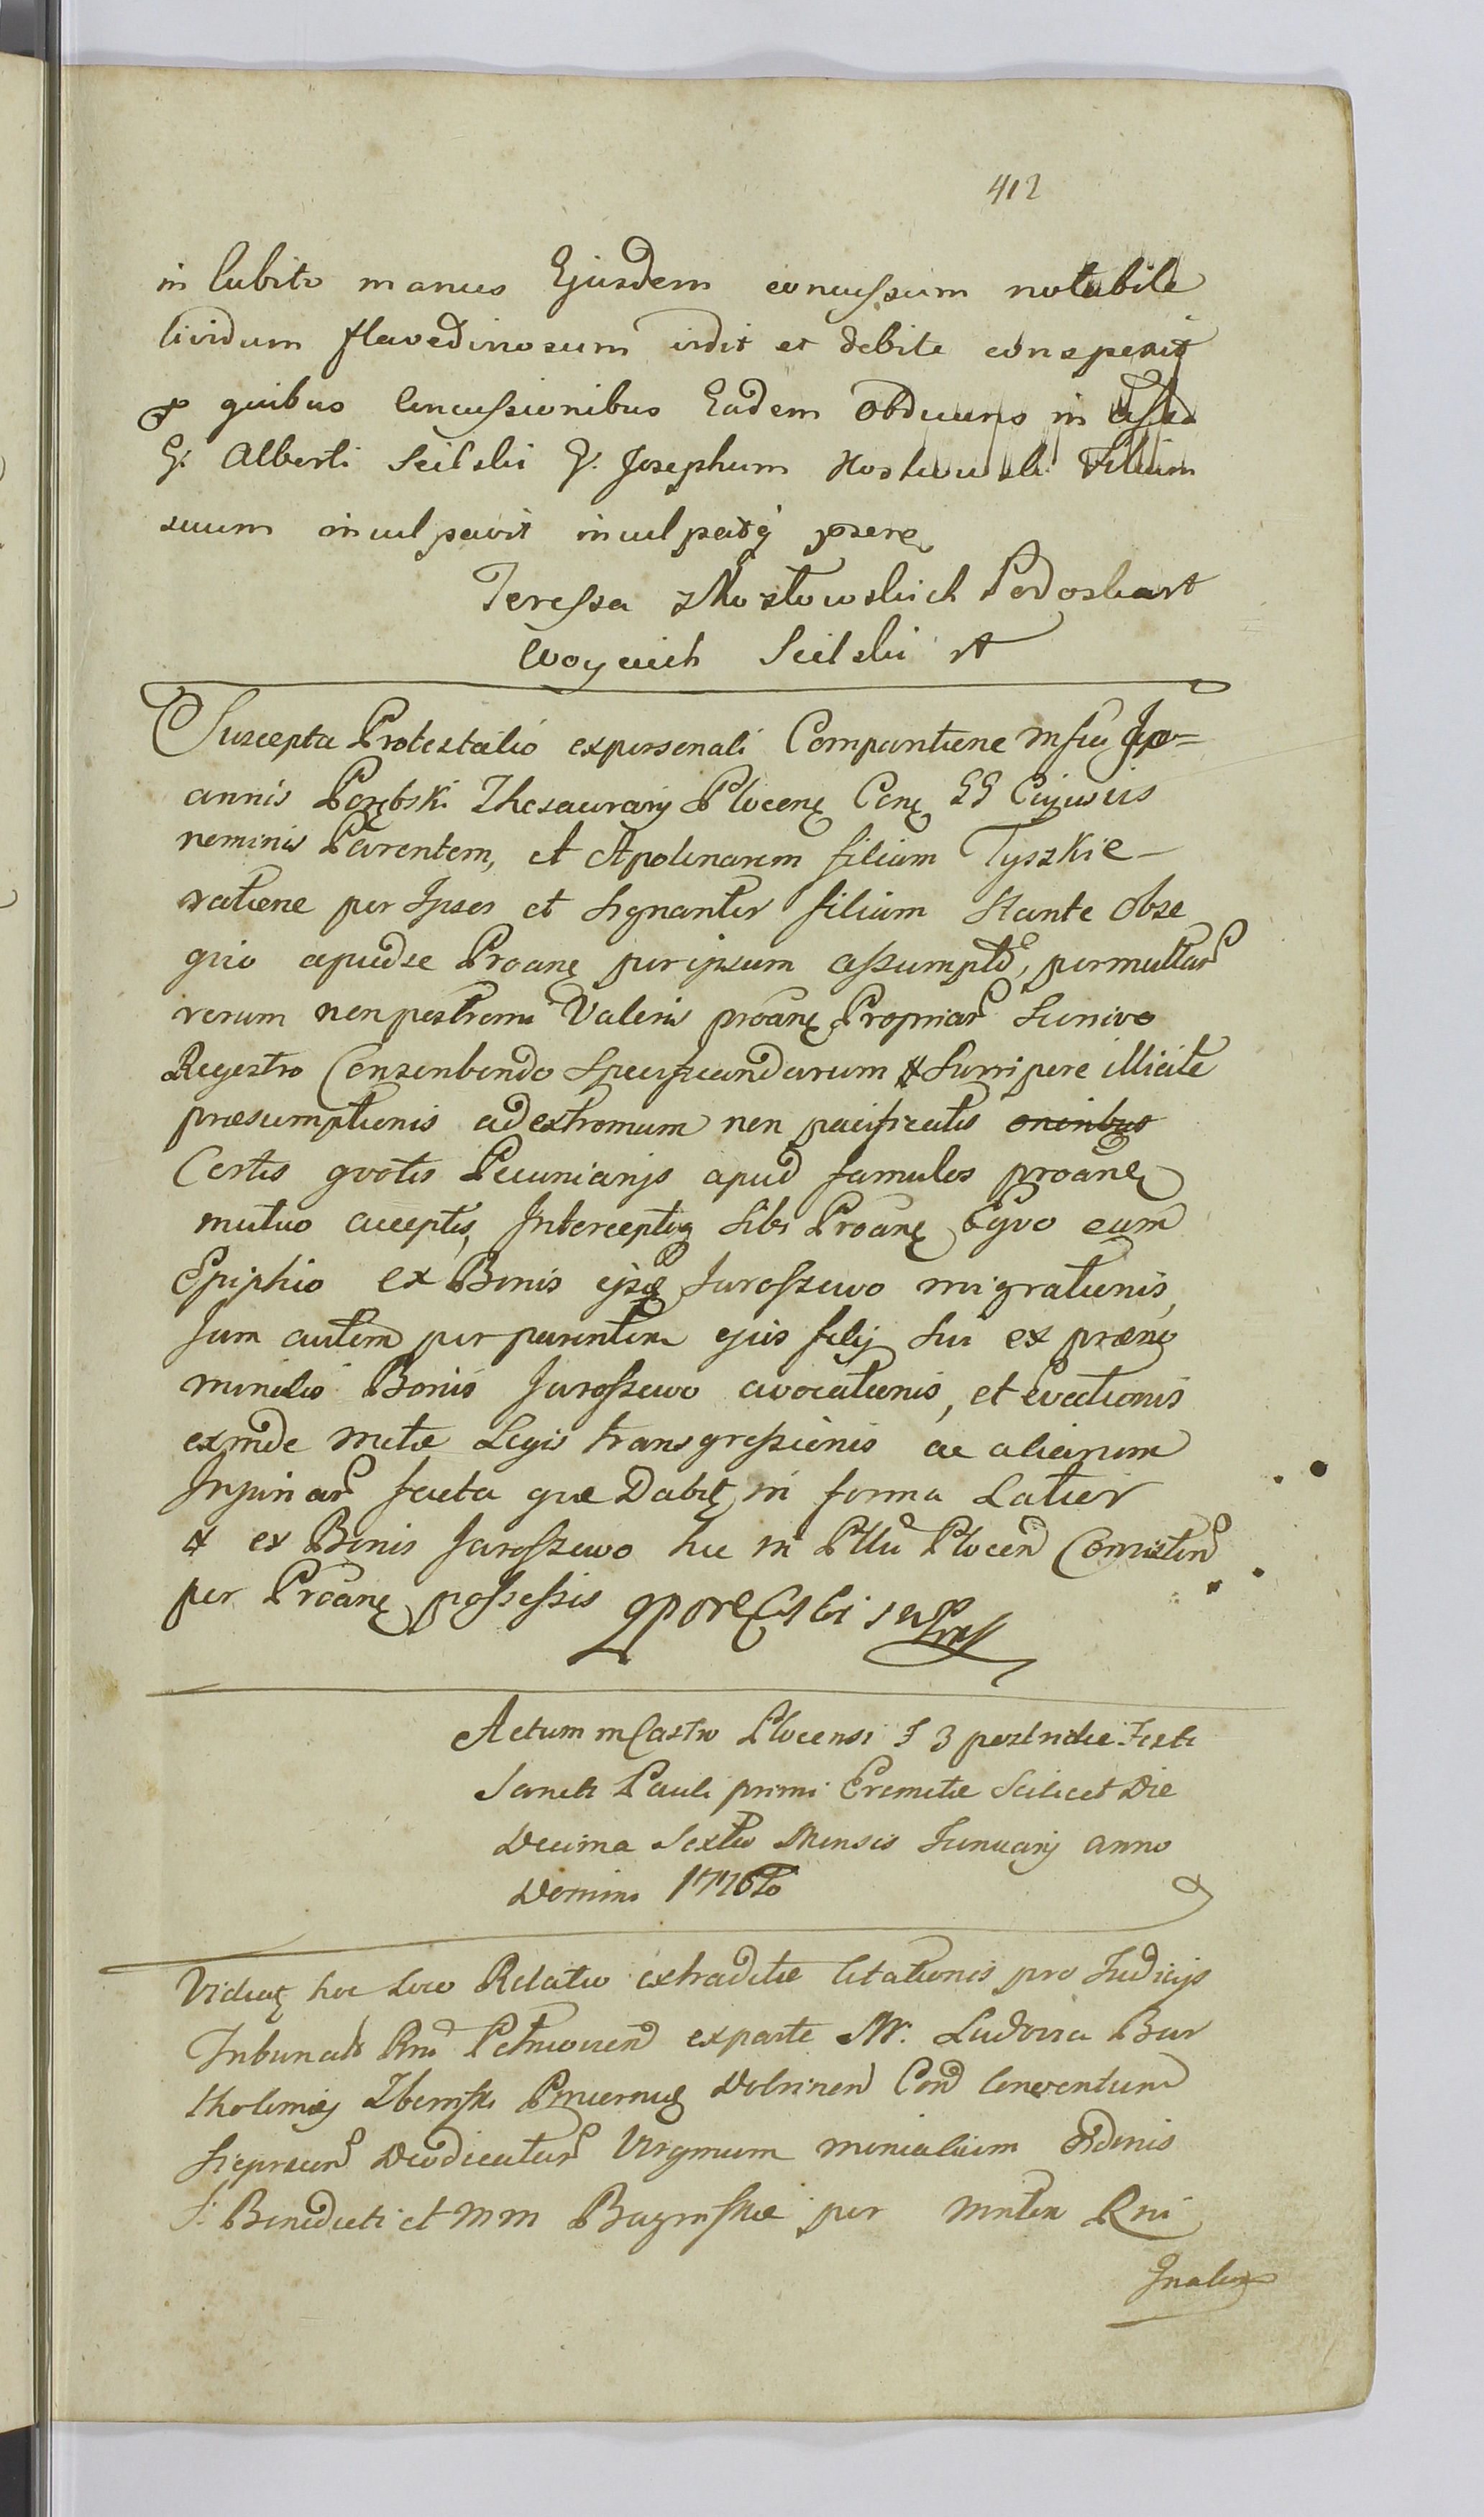 412
in Cubito manus Ejusdem concussum notabile
lividum flavedinosum vidit et debite conspexit
quibus Concussionibus Eadem Obducens in
G. Alberti Scilski G. Josephum Filium
suum inculpavit inculpatq
Teressa z Mostowskich Podoskart
Woyciech Scilski
Suscepta Protestatio expersonali Comparitione Mfici Jo=
annis Porębski Thesaurarij Plocenę Conę GG Cujusvis
neminis Parentem, et Apolinarem filium Tyszkie
ratione per Ipsos et signanter filium stante Obse
quio apudse Proanę peripsum assumpto, permultar
rerum nonpostremi Valoris proanę Propriar Sunivo
Regestro Conscribendo Specificandarum & Surripere illicite
præsumptionis adextremum non pacificatis oneribus
Certis qvotis Pecuniarijs apud famulos proanę
mutuo acceptis, Interceptoq sibi Proanę Eqvo cum
Epiphio ex Bonis ejsdę Jarosszewo migrationis,
Jam autem per parentem ejus filij sui ex præno
minatis Bonis Jarosszewo avocationis, et evectionis
exinde metæ Legis transgressionis ac aliarum
Injuriar facta quæ Dabit in forma Latior
& ex Bonis Jarosszewo hic in Pttu Plocen Consisten
per Proanę possessis
Actum in Castro Plocensi F 3 postridie Festi
Sancti Pauli primi Eremitæ Scilicet Die
Decima Sexta Mensis Januarij anno
Domini 1776to
Videatę hoc Loco Relatio extraditæ Citationis pro Judicijs
Tribunalis Rni Petricovien exparte M. Ludovica Bar
tholomæj Zboinski Dobrinen Con Conventum
Sieprcen Deodicatar Virginum monialium Ordinis
S. Benedicti et MM Bagienskæ per Mnlem Rni